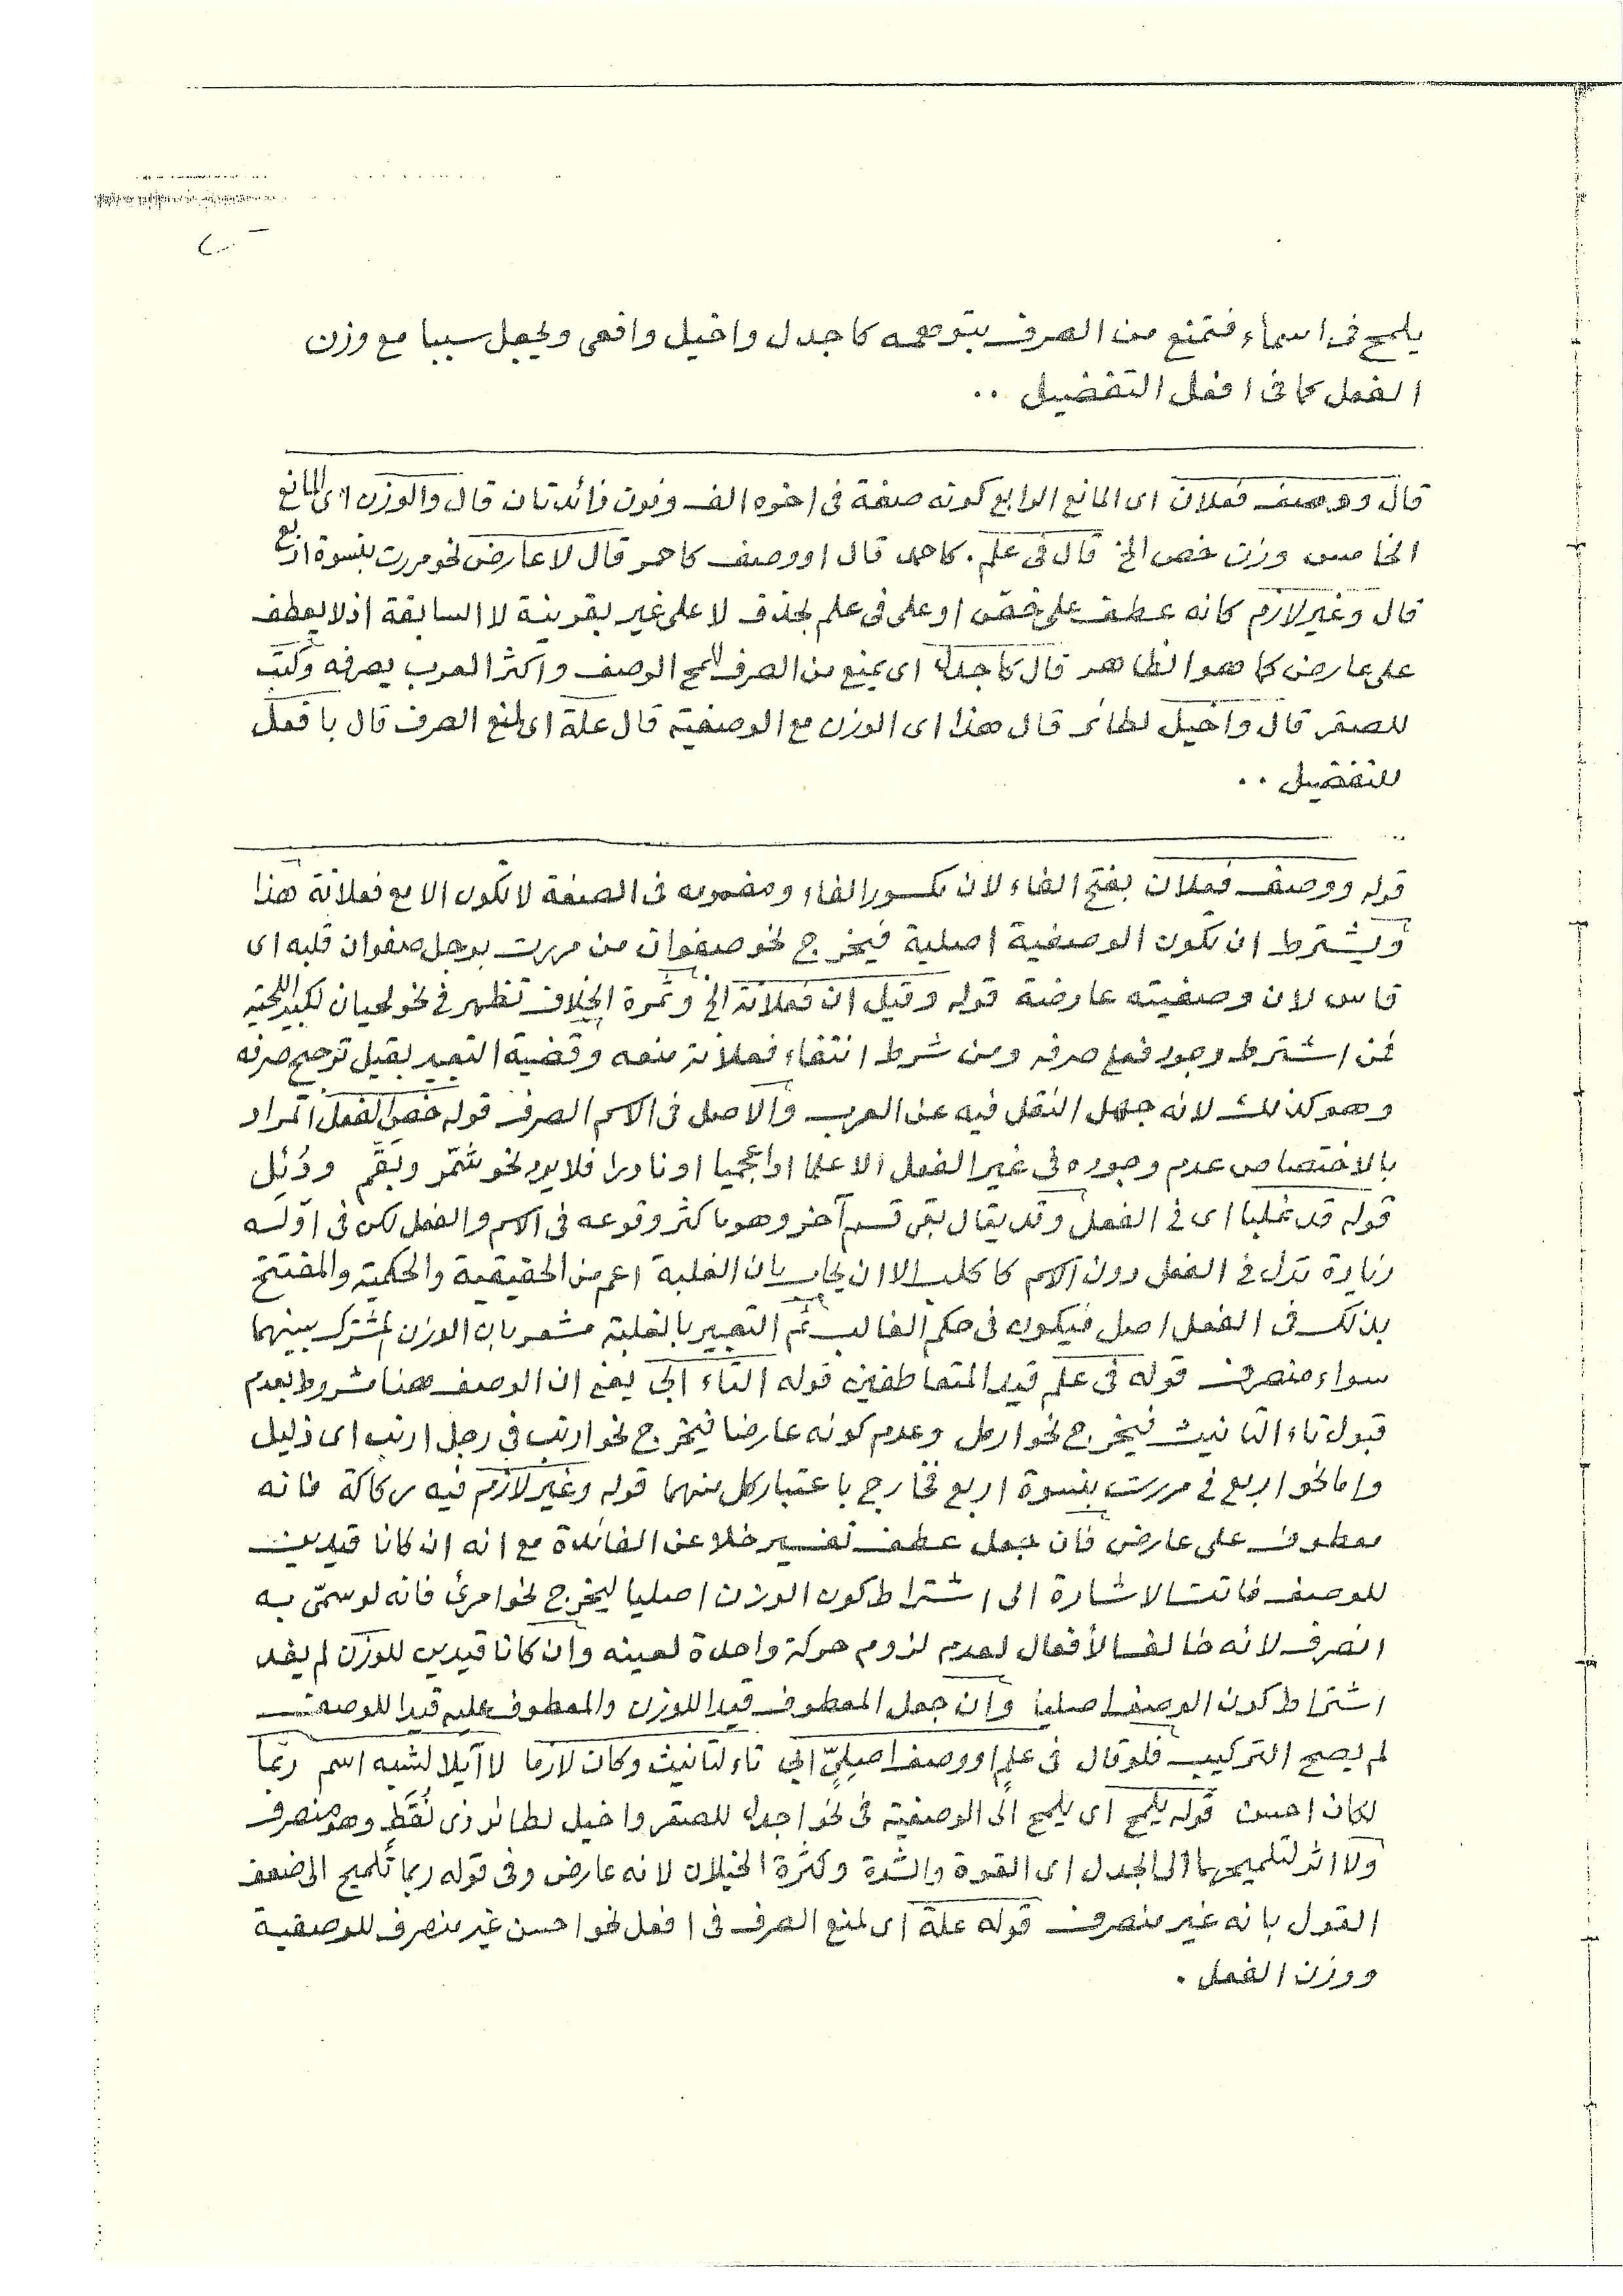 يلمح فى اسماء فتمنع من الصرف بتوهمه كاجدل واخيل وافعى ويجعل سببا مع وزن
الفعل كما فى افعل التفضيل ..
قال ووصف فعلان اى المانع الرابع كونه صفة فى اخره الف ونون زائدتان قال والوزن اى المانع
الخامس وزن خص الخ قال فى علم . كاحمد قال او وصف كاحمر قال لا عارض نحو مررت بنسوة اربع
قال وغير لازم كانه عطف على خص او على فى علم بحذف لا على غير بقرينة لا السابقة اذ لا يعطف
على عارض كما هو الظاهر قال كاجدل اى يمنع من الصرف للمح الوصف واكثر العرب يصرفه وكتب
للصقر قال واخيل لطائر قال هذا اى الوزن مع الوصفية قال علة اى لمنع الصرف قال بافعل
للتفضيل ..
قوله ووصف فعلان بفتح الفاء لان مكسور الفاء ومضمومه فى الصفة لا تكون الا مع فعلانة هذا
ويشترط ان تكون الوصفية اصلية فيخرج نحو صفوان من مررت برجل صفوان قلبه اى
قاس لان وصفيته عارضة قوله وقيل ان فعلانة الخ وثمرة الخلاف تظهر فى نحو لحيان لكبير اللحية
فمن اشترط وجود فعلى صرفه ومن شرط انتفاء فعلانة منعه وقضية التعبير بقيل ترجيح صرفه
وهو كذلك لانه جهل النقل فيه عن العرب والاصل فى الاسم الصرف قوله خص الفعل المراد
بالاختصاص عدم وجوده فى غير الفعل الا علما او اعجميا او نادرا فلا يرد نحو شمّر وبَقَّم ودُئِل
قوله قد غلبا اى فى الفعل وقد يقال بقى قسم آخر وهو ما كثر وقوعه فى الاسم والفعل لكن فى اوّله
زيادة تدل فى الفعل دون الاسم كاكلب الا ان يجاب بان الغلبة اعم من الحقيقية والحكمية والمفتتح
بذلك فى الفعل اصل فيكون فى حكم الغالب ثم التعبير بالغلبة مشعر بان الوزن المشترك بينهما
سواء منصرف قوله فى علم قيد المتعاطفين قوله التاء ابى يعنى ان الوصف هنا مشروط بعدم
قبول تاء التانيث فيخرج نحو ارمل وعدم كونه عارضا فيخرج نحو ارنب فى رجل ارنب اى ذليل
واما نحو اربع فى مررت بنسوة اربع فخارج باعتبار كل منهما قوله وغير لازم فيه ركاكة فانه
معطوف على عارض فان جعل عطف تفسير خلا عن الفائدة مع انه ان كانا قيدين
للوصف فاتت الاشارة الى اشتراط كون الوزن اصليا ليخرج نحو امرئ فانه لو سمّى به
انصرف لانه خالف الأفعال لعدم لزوم حركة واحدة لعينه وان كانا قيدين للوزن لم يفد
اشتراط كون الوصف اصليا وان جعل المعطوف قيدا للوزن والمعطوف عليه قيدا للوصف
لم يصح التركيب فلو قال فى علمٍ او وصف اصليٍّ ابى تاء لتانيث وكان لازما لا آيلا لشبه اسم ربّما
لكان احسن قوله يلمح اى يلمح الى الوصفية فى نحو اجدل للصقر واخيل لطائر ذى نُقَط وهو منصرف
ولا اثر لتلميحهما الى الجدل اى القوة والشدة وكثرة الخيلان لانه عارض وفى قوله ربما تلميح الى ضعف
القول بانه غير منصرف قوله علة اى لمنع الصرف فى افعل نحو احسن غير منصرف للوصفية
ووزن الفعل .